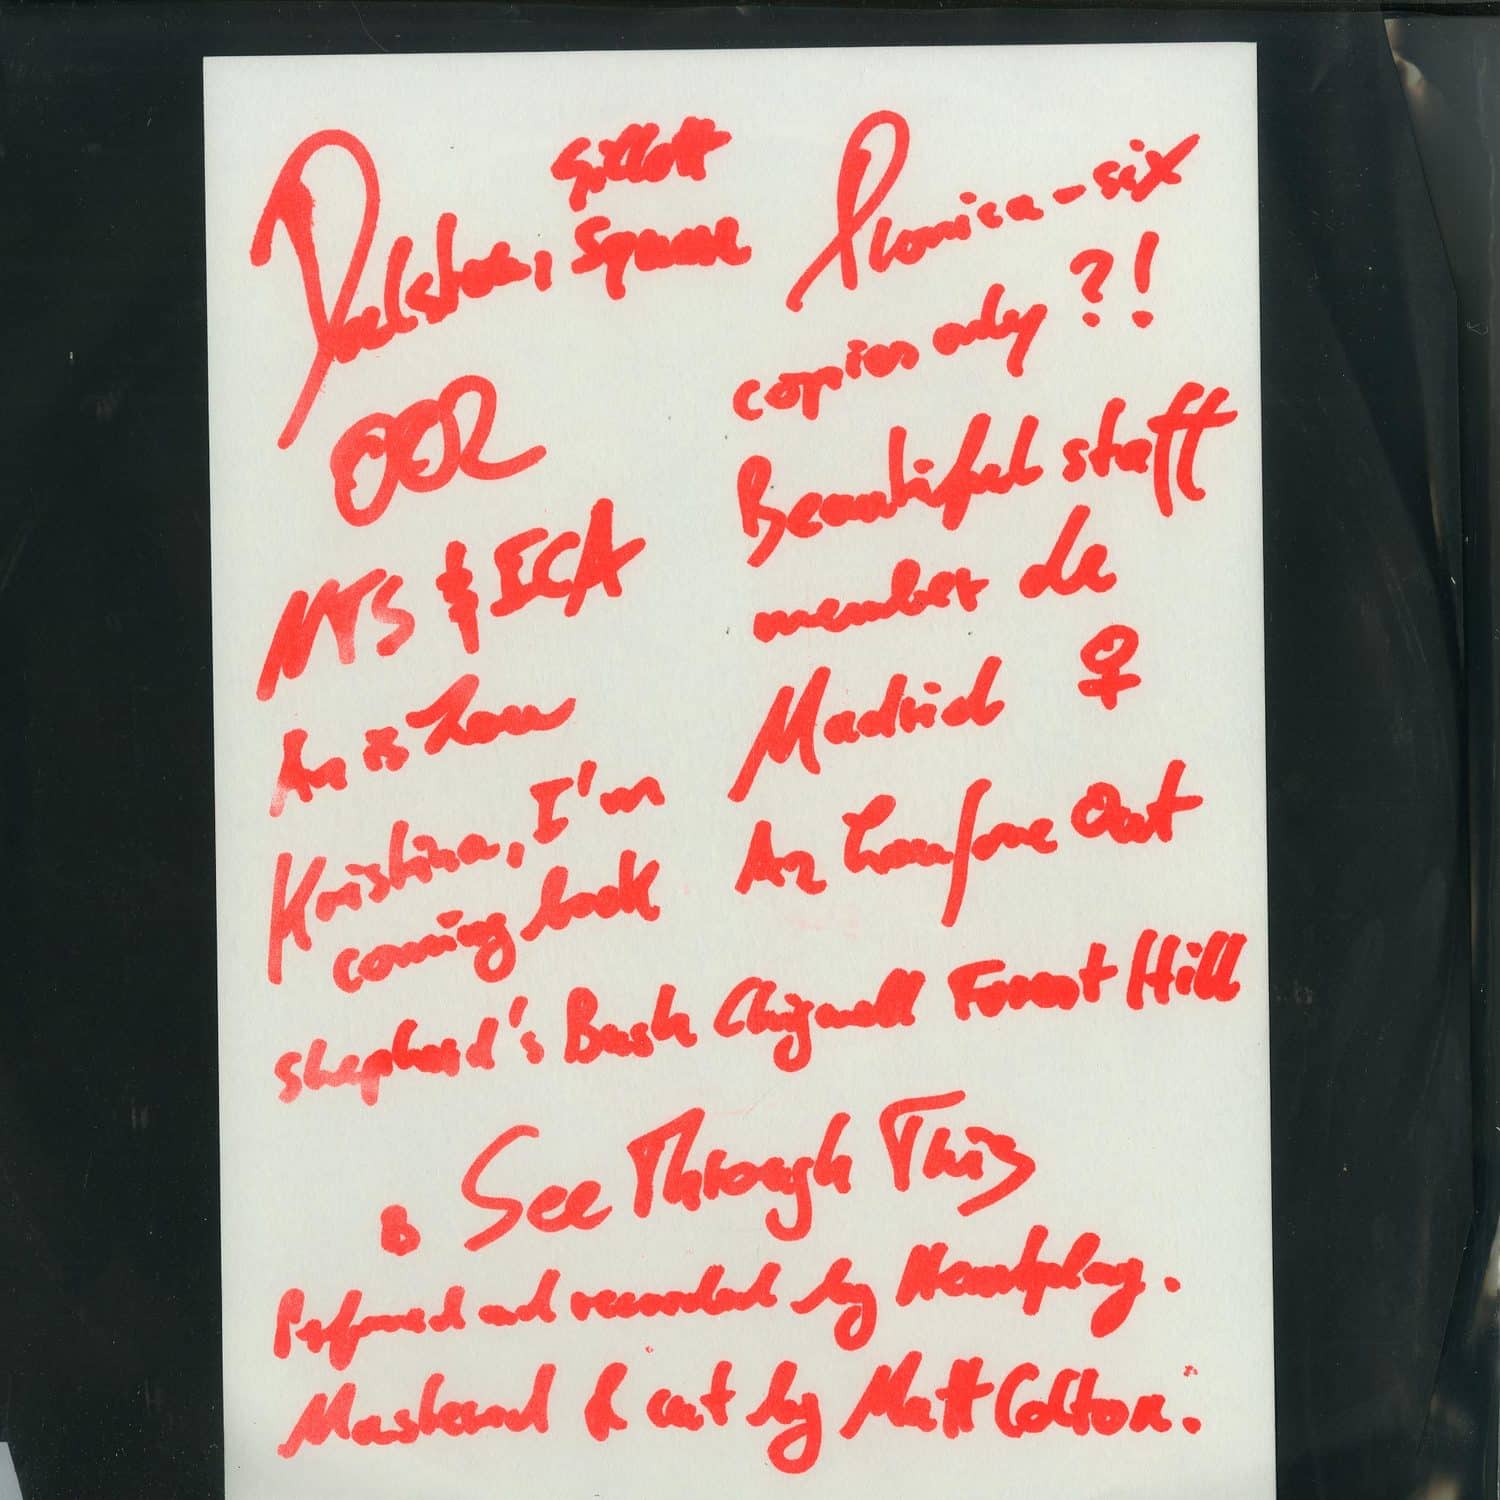 Dalston, Gillett Square
OOR
NTS & ICA
An is
Kristina, I'm
coming back
Phonica-six
copies only ?!
Beautiful staff
member de
Madrid ♀
An Out
shepherd's Bush Chigwell Forest Hill
B See Through This
Performed and recorded by
Mastered & cut by Matt Colton.